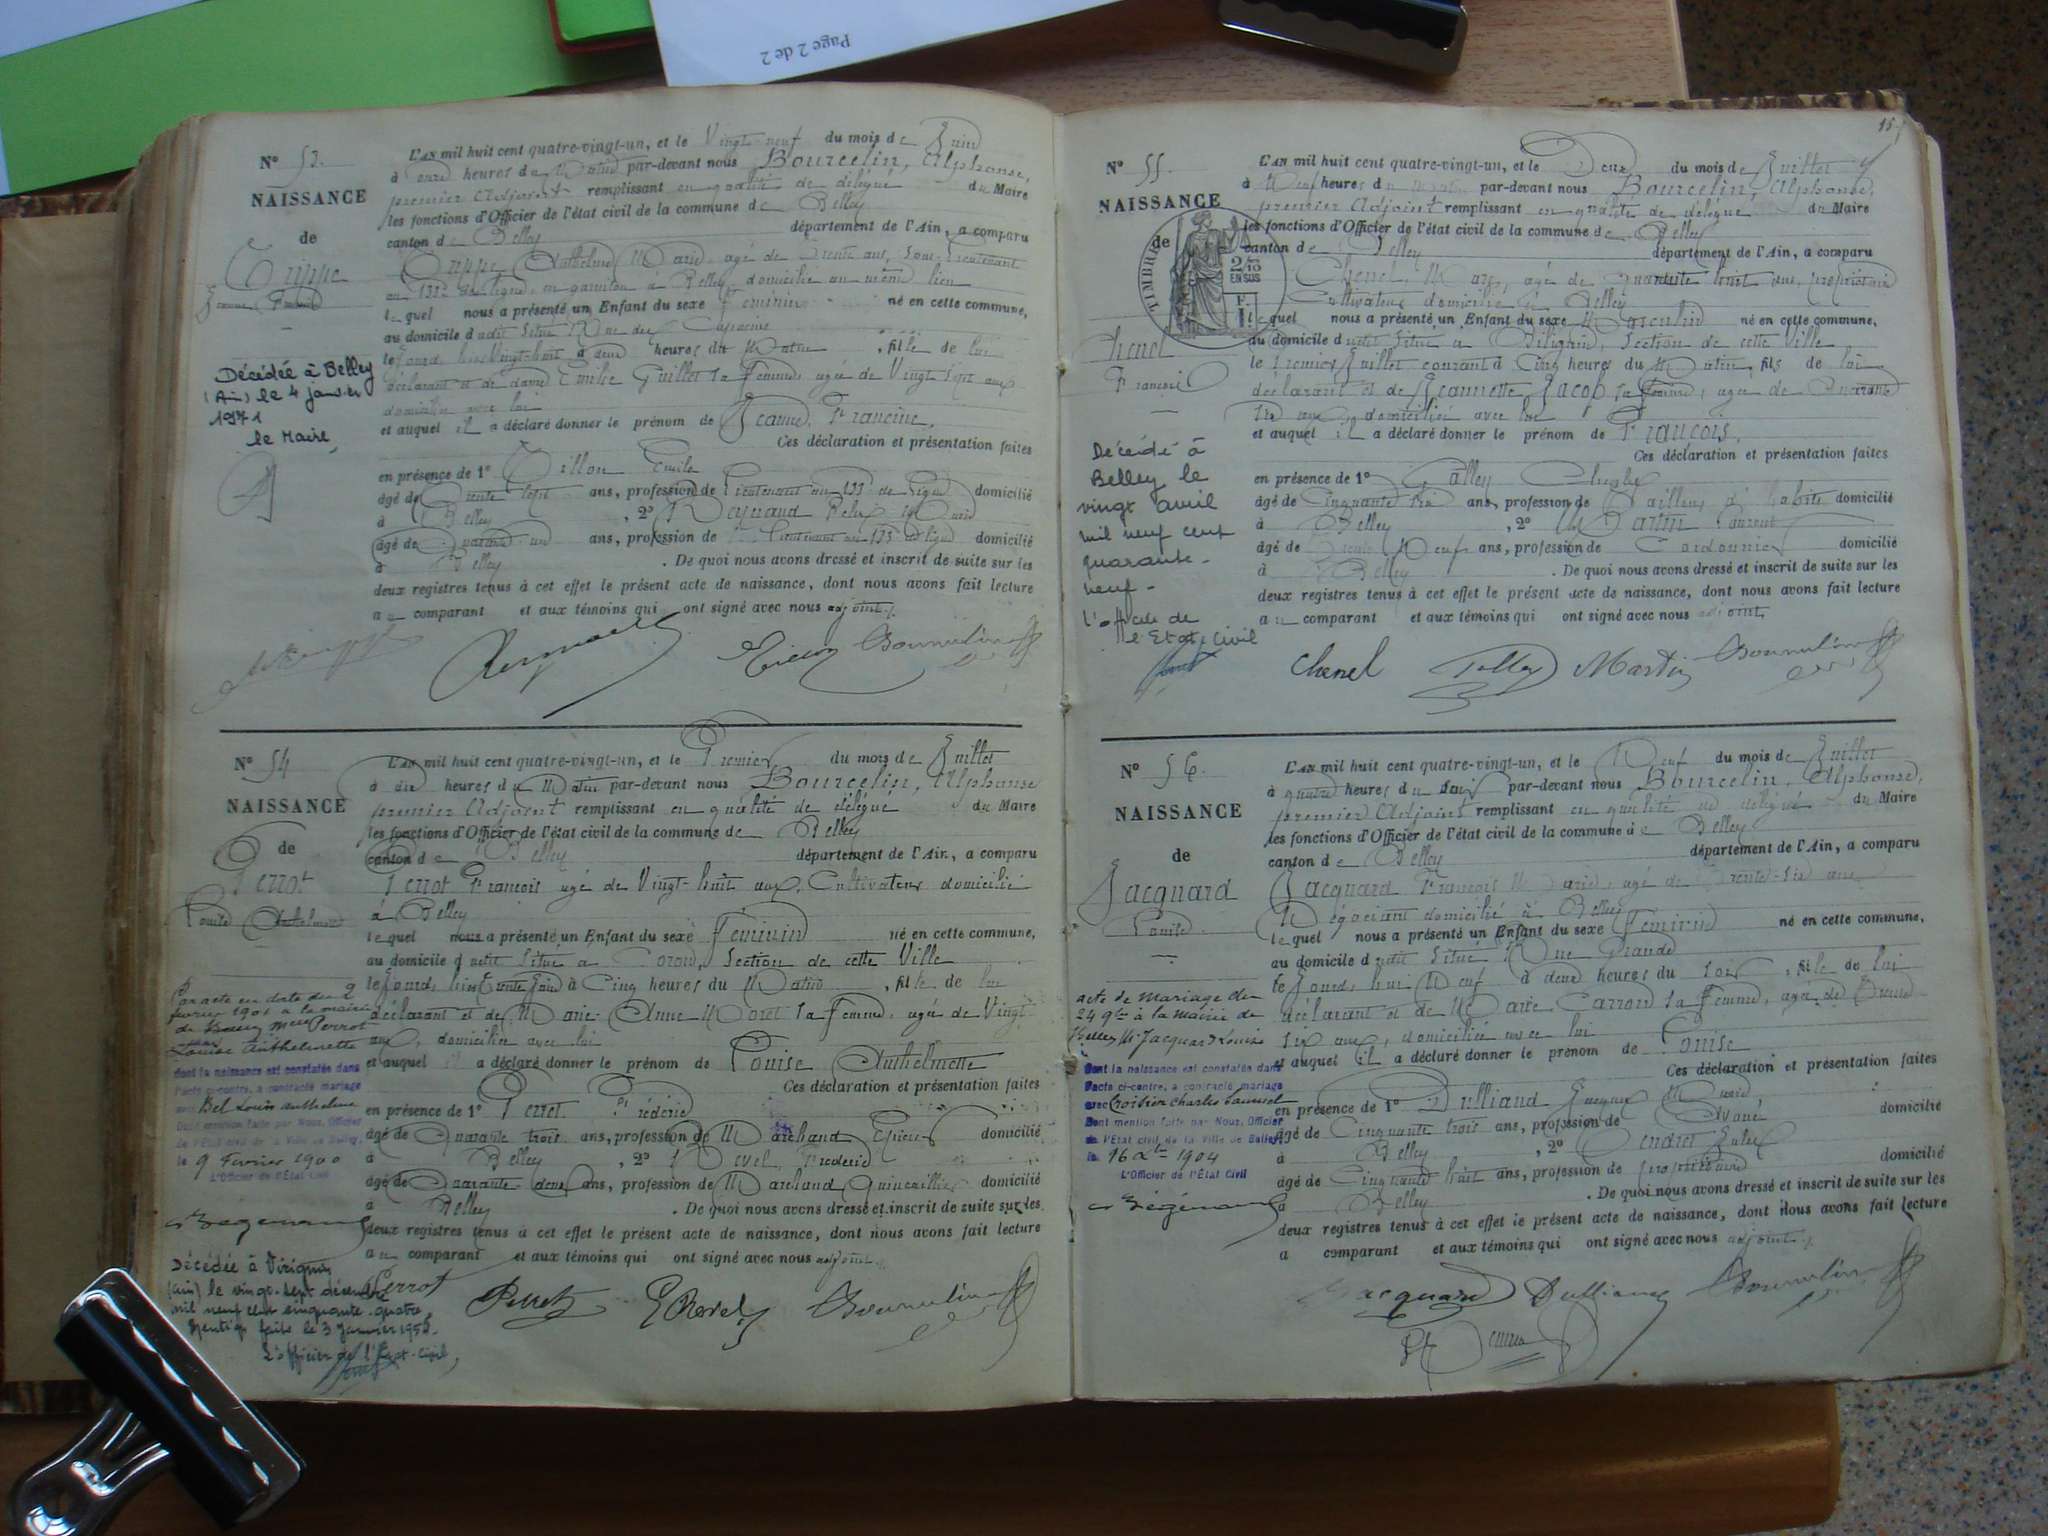 Page 2 de 2
N° 53.
NAISSANCE
de
Trippe
Jeanne Francine
Décédée à Belley
(Ain) le 4 janvier
1971
le Maire,
L'AN mil huit cent quatre-vingt-un, et le Vingt-neuf du mois de Juin
à onze heures du Matin par-devant nous Bourcelin, Alphonse,
premier Adjoint remplissant en qualité de délégué du Maire
les fonctions d'Officier de l'état civil de la commune de Belley
canton de Belley département de l'Ain, a comparu
Trippe, Anthelme Marie, agé de trente ans, Sous-Lieutenant
au 133e de ligne, en garnison à Belley, domicilié au même lieu
lequel nous a présenté un Enfant du sexe Féminin né en cette commune,
au domicile dudit Situé Rue des Capucins
le jourd'hui Vingt-huit à deux heures du Matin, fille de lui
déclarant et de dame Emilie Guillet sa Femme, agée de Vingt Sept ans
domiciliée avec lui
et auquel il a déclaré donner le prénom de Jeanne, Francine,
Ces déclaration et présentation faites
en présence de 1° Emile
âgé de Trente Sept ans, profession de Lieutenant au 133 de Ligne domicilié
à Belley, 2° Reynaud
âgé de Quarante un ans, profession de Lieutenant au 133 de Ligne domicilié
à Belley. De quoi nous avons dressé et inscrit de suite sur les
deux registres tenus à cet effet le présent acte de naissance, dont nous avons fait lecture
au comparant et aux témoins qui ont signé avec nous adjoint.
N° 54
NAISSANCE
de
Perrot
Louise Anthelmette
Par acte en date du 9
février 1901 à la mairie
de Bourg Melle Perrot
Louise Anthelmette
dont la naissance est constatée dans
l'acte ci-contre, a contracté mariage
avec Bel Louis Anthelme
Dont mention faite par Nous, Officier
de l'Etat civil de la Ville de Belley,
le 9 Fevrier 1900
L'Officier de l'Etat Civil
Décédée à Virignin
(Ain) le vingt-sept décembre
mil neuf cent cinquante-quatre
Mention faite le 3 Janvier 1955.
L'officier de l'Etat-Civil,
L'AN mil huit cent quatre-vingt-un, et le Premier du mois de Juillet
à dix heures du Matin par-devant nous Bourcelin, Alphonse
premier Adjoint remplissant en qualité de délégué du Maire
les fonctions d'Officier de l'état civil de la commune de Belley
canton de Belley département de l'Ain, a comparu
Perrot François agé de Vingt-huit ans, Cultivateur domicilié
à Belley
lequel nous a présenté un Enfant du sexe Féminin né en cette commune,
au domicile dudit Situé à Coron, Section de cette Ville
le jour d'hier trente Juin à Cinq heures du Matin, fille de lui
déclarant et de Marie Anne Moret sa Femme, agée de Vingt
ans, domiciliée avec lui
et auquel il a déclaré donner le prénom de Louise Anthelmette
Ces déclaration et présentation faites
en présence de 1° Perret Frédéric
âgé de Quarante trois ans, profession de Marchand Epicier domicilié
à Belley, 2° Revel, Frédéric
âgé de Quarante deux ans, profession de Marchand Quincaillier domicilié
à Belley. De quoi nous avons dressé et inscrit de suite sur les
deux registres tenus à cet effet le présent acte de naissance, dont nous avons fait lecture
au comparant et aux témoins qui ont signé avec nous adjoint.
Perrot Perret Revel Bourcelin
N° 55.
NAISSANCE
de
TIMBRE
2/10 EN SUS
Chenel
François
Décédé à
Belley le
vingt avril
mil neuf cent
quarante-
neuf-
L'officier de
l'Etat Civil
L'AN mil huit cent quatre-vingt-un, et le Deux du mois de Juillet
à Neuf heures du matin par-devant nous Bourcelin, Alphonse,
premier Adjoint remplissant en qualité de délégué du Maire
les fonctions d'Officier de l'état civil de la commune de Belley
canton de Belley département de l'Ain, a comparu
Chenel, Marc, agé de Quarante huit ans, propriétaire
Cultivateur domicilié à Belley
lequel nous a présenté un Enfant du sexe Masculin né en cette commune,
au domicile dudit Situé à Billignin, Section de cette Ville
le Premier Juillet courant à Cinq heures du Matin, fils de lui
déclarant et de Jeannette Jacop sa Femme, agée de Quarante
Six ans domiciliée avec lui
et auquel il a déclaré donner le prénom de François,
Ces déclaration et présentation faites
en présence de 1° Talley
âgé de Cinquante Six ans, profession de Tailleur d'habits domicilié
à Belley, 2° Martin Laurent
âgé de Trente Neuf ans, profession de Cordonnier domicilié
à Belley. De quoi nous avons dressé et inscrit de suite sur les
deux registres tenus à cet effet le présent acte de naissance, dont nous avons fait lecture
au comparant et aux témoins qui ont signé avec nous adjoint.
Chenel Talley Martin Bourcelin
N° 56.
NAISSANCE
de
Jacquard
Louise.
acte de mariage du
24 9bre à la mairie de
Belley Melle Jacquard Louise
Dont la naissance est constatée dans
l'acte ci-contre, a contracté mariage
avec Croisier Charles Samuel
Dont mention faite par Nous, Officier
de l'Etat civil de la Ville de Belley
le 16 Xbre 1904
L'Officier de l'Etat Civil
L'AN mil huit cent quatre-vingt-un, et le Neuf du mois de Juillet
à quatre heures du Soir par-devant nous Bourcelin, Alphonse,
premier Adjoint remplissant en qualité de délégué du Maire
les fonctions d'Officier de l'état civil de la commune de Belley
canton de Belley département de l'Ain, a comparu
Jacquard François Marie, agé de Trente-Six ans,
Négociant domicilié à Belley
lequel nous a présenté un Enfant du sexe Féminin né en cette commune,
au domicile dudit Situé Rue Grande
le jourd'hui Neuf à deux heures du Soir, fille de lui
déclarant et de Marie Carron sa Femme, agée de Trente
Six ans, domiciliée avec lui
et auquel il a déclaré donner le prénom de Louise
Ces déclaration et présentation faites
en présence de 1° Dulliand Jacques Marie,
âgé de Cinquante trois ans, profession de Avoué domicilié
à Belley, 2°
âgé de Cinquante huit ans, profession de propriétaire domicilié
à Belley. De quoi nous avons dressé et inscrit de suite sur les
deux registres tenus à cet effet le présent acte de naissance, dont nous avons fait lecture
a comparant et aux témoins qui ont signé avec nous adjoint.
Jacquard Dulliand Bourcelin